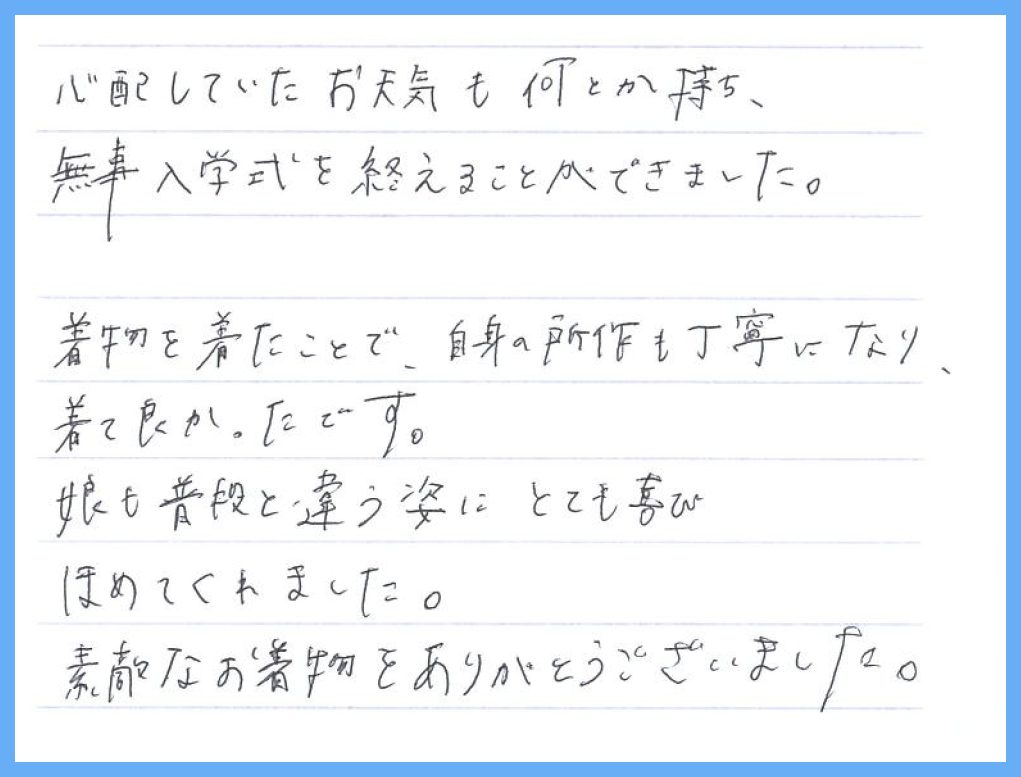 心配していたお天気も何とか持ち、
無事入学式を終えることができました。
着物を着たことで、自身の所作も丁寧になり、
着て良かったです。
娘も普段と違う姿にとても喜び
ほめてくれました。
素敵なお着物をありがとうございました。